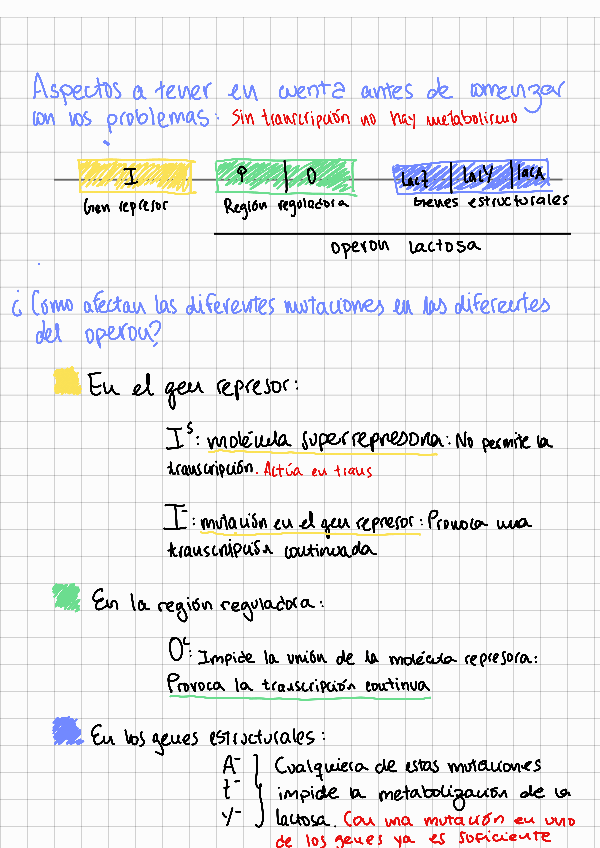 Aspectos a tener en cuenta antes de comenzar
con los problemas: Sin transcripción no hay metabolismo
I P O lacZ lacY lacA
Gen represor Región reguladora Genes estructurales
operon lactosa
¿Cómo afectan las diferentes mutaciones en las diferentes
del operon?
En el gen represor:
Iˢ: molécula superrepresora: No permite la
transcripción. Actúa en trans
I⁻: mutación en el gen represor: Provoca una
transcripción continuada
En la región reguladora:
Oᶜ: Impide la unión de la molécula represora:
Provoca la transcripción continua
En los genes estructurales:
A⁻ } Cualquiera de estas mutaciones
z⁻ impide la metabolización de la
y⁻ lactosa. Con una mutación en uno
de los genes ya es suficiente